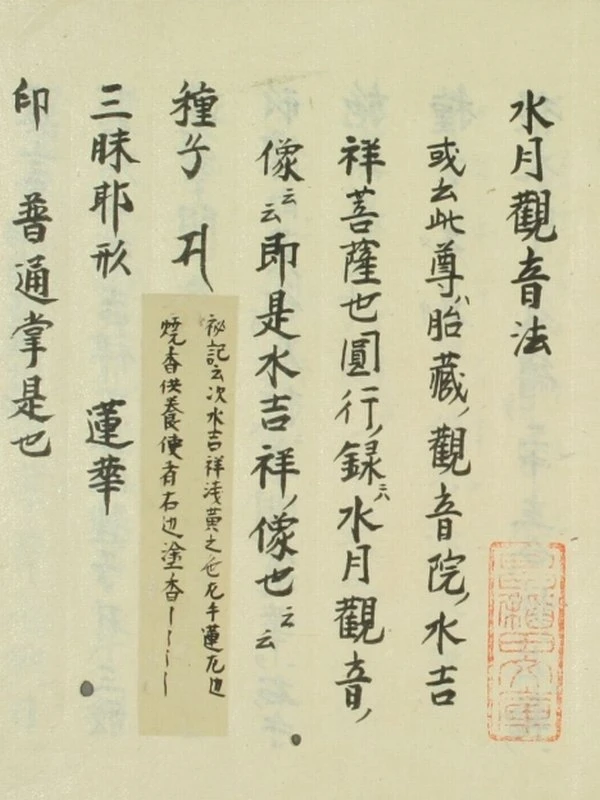 水月觀音法
或云此尊ハ胎藏ノ觀音院ノ水吉
祥菩薩也圓行ノ録ニハ水月觀音ノ
像云云即是水吉祥ノ像也云云
種子
秘記云次水吉祥淺黃之色左手蓮左边
燒香供養使者右边塗香
三昧耶形 蓮華
印 普通掌是也